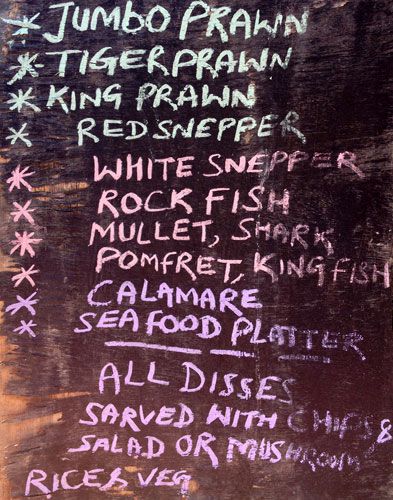 * JUMBO PRAWN
* TIGER PRAWN
* KING PRAWN
* RED SNEPPER
* WHITE SNEPPER
* ROCK FISH
* MULLET, SHARK
* POMFRET, KING FISH
* CALAMARE
* SEAFOOD PLATTER
ALL DISSES
SARVED WITH CHIPS &
SALAD OR MUSHROOM
RICE & VEG